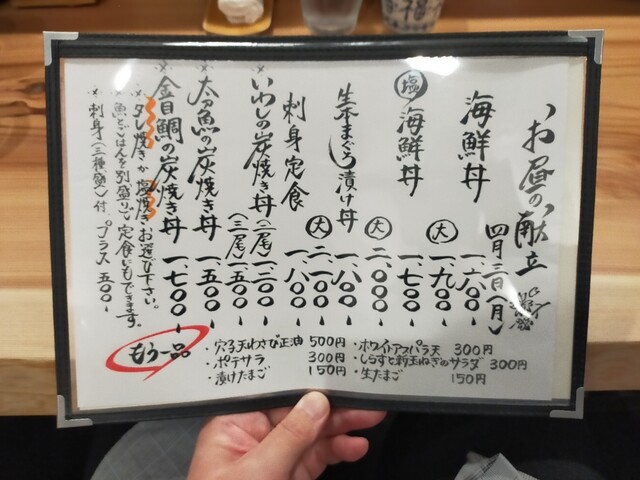 お昼の献立
四月三日(月)
海鮮丼 一、六〇〇
大 一、九〇〇
塩 海鮮丼 一、七〇〇
大 二、〇〇〇
生本まぐろ漬け丼 一、八〇〇
大 二、一〇〇
刺身定食 一、八〇〇
※いわしの炭焼き丼(二尾)一、二〇〇
(三尾)一、五〇〇
※太刀魚の炭焼き丼 一、五〇〇
※金目鯛の炭焼き丼 一、七〇〇
※タレ焼きか塩焼きお選び下さい。
※魚とごはんを別盛りご定食にもできます。
※刺身(三種盛)付、プラス五〇〇
もう一品
・穴子天わさび正油 500円
・ポテサラ 300円
・漬けたまご 150円
・ホワイトアスパラ天 300円
・しらすと新玉ねぎのサラダ 300円
・生たまご 150円